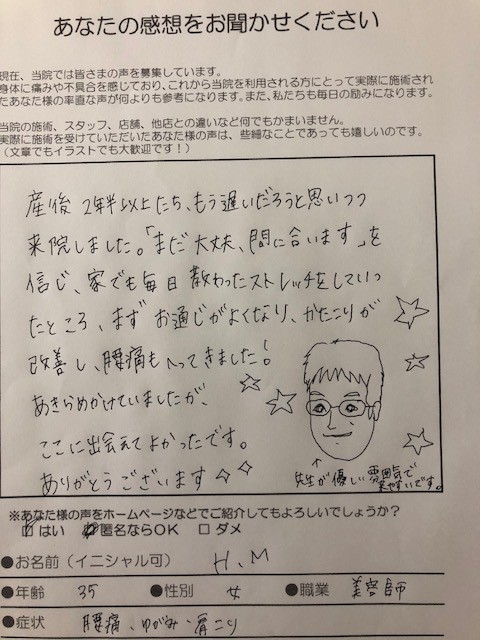 あなたの感想をお聞かせください
現在、当院では皆さまの声を募集しています。
身体に痛みや不具合を感じており、これから当院を利用される方にとって実際に施術され
たあなた様の率直な声が何よりも参考になります。また、私たちも毎日の励みになります。
当院の施術、スタッフ、店舗、他店との違いなど何でもかまいません。
実際に施術を受けていただいたあなた様の声は、些細なことであっても嬉しいのです。
（文章でもイラストでも大歓迎です！）
産後 2年半以上たち、もう遅いだろうと思いつつ
来院しました。「まだ大丈夫、間に合います」を
信じ、家でも毎日 教わったストレッチをしていっ
たところ、まず お通じがよくなり、かたこりが
改善し、腰痛もへってきました!
あきらめかけていましたが、
ここに出会えてよかったです。
ありがとうございます
↑
先生が優しい雰囲気で
来やすいです。
※あなた様の声をホームページなどでご紹介してもよろしいでしょうか？
☑はい ☑匿名ならOK □ダメ
●お名前（イニシャル可） H.M
●年齢 35 ●性別 女 ●職業 美容師
●症状 腰痛、ゆがみ・肩こり